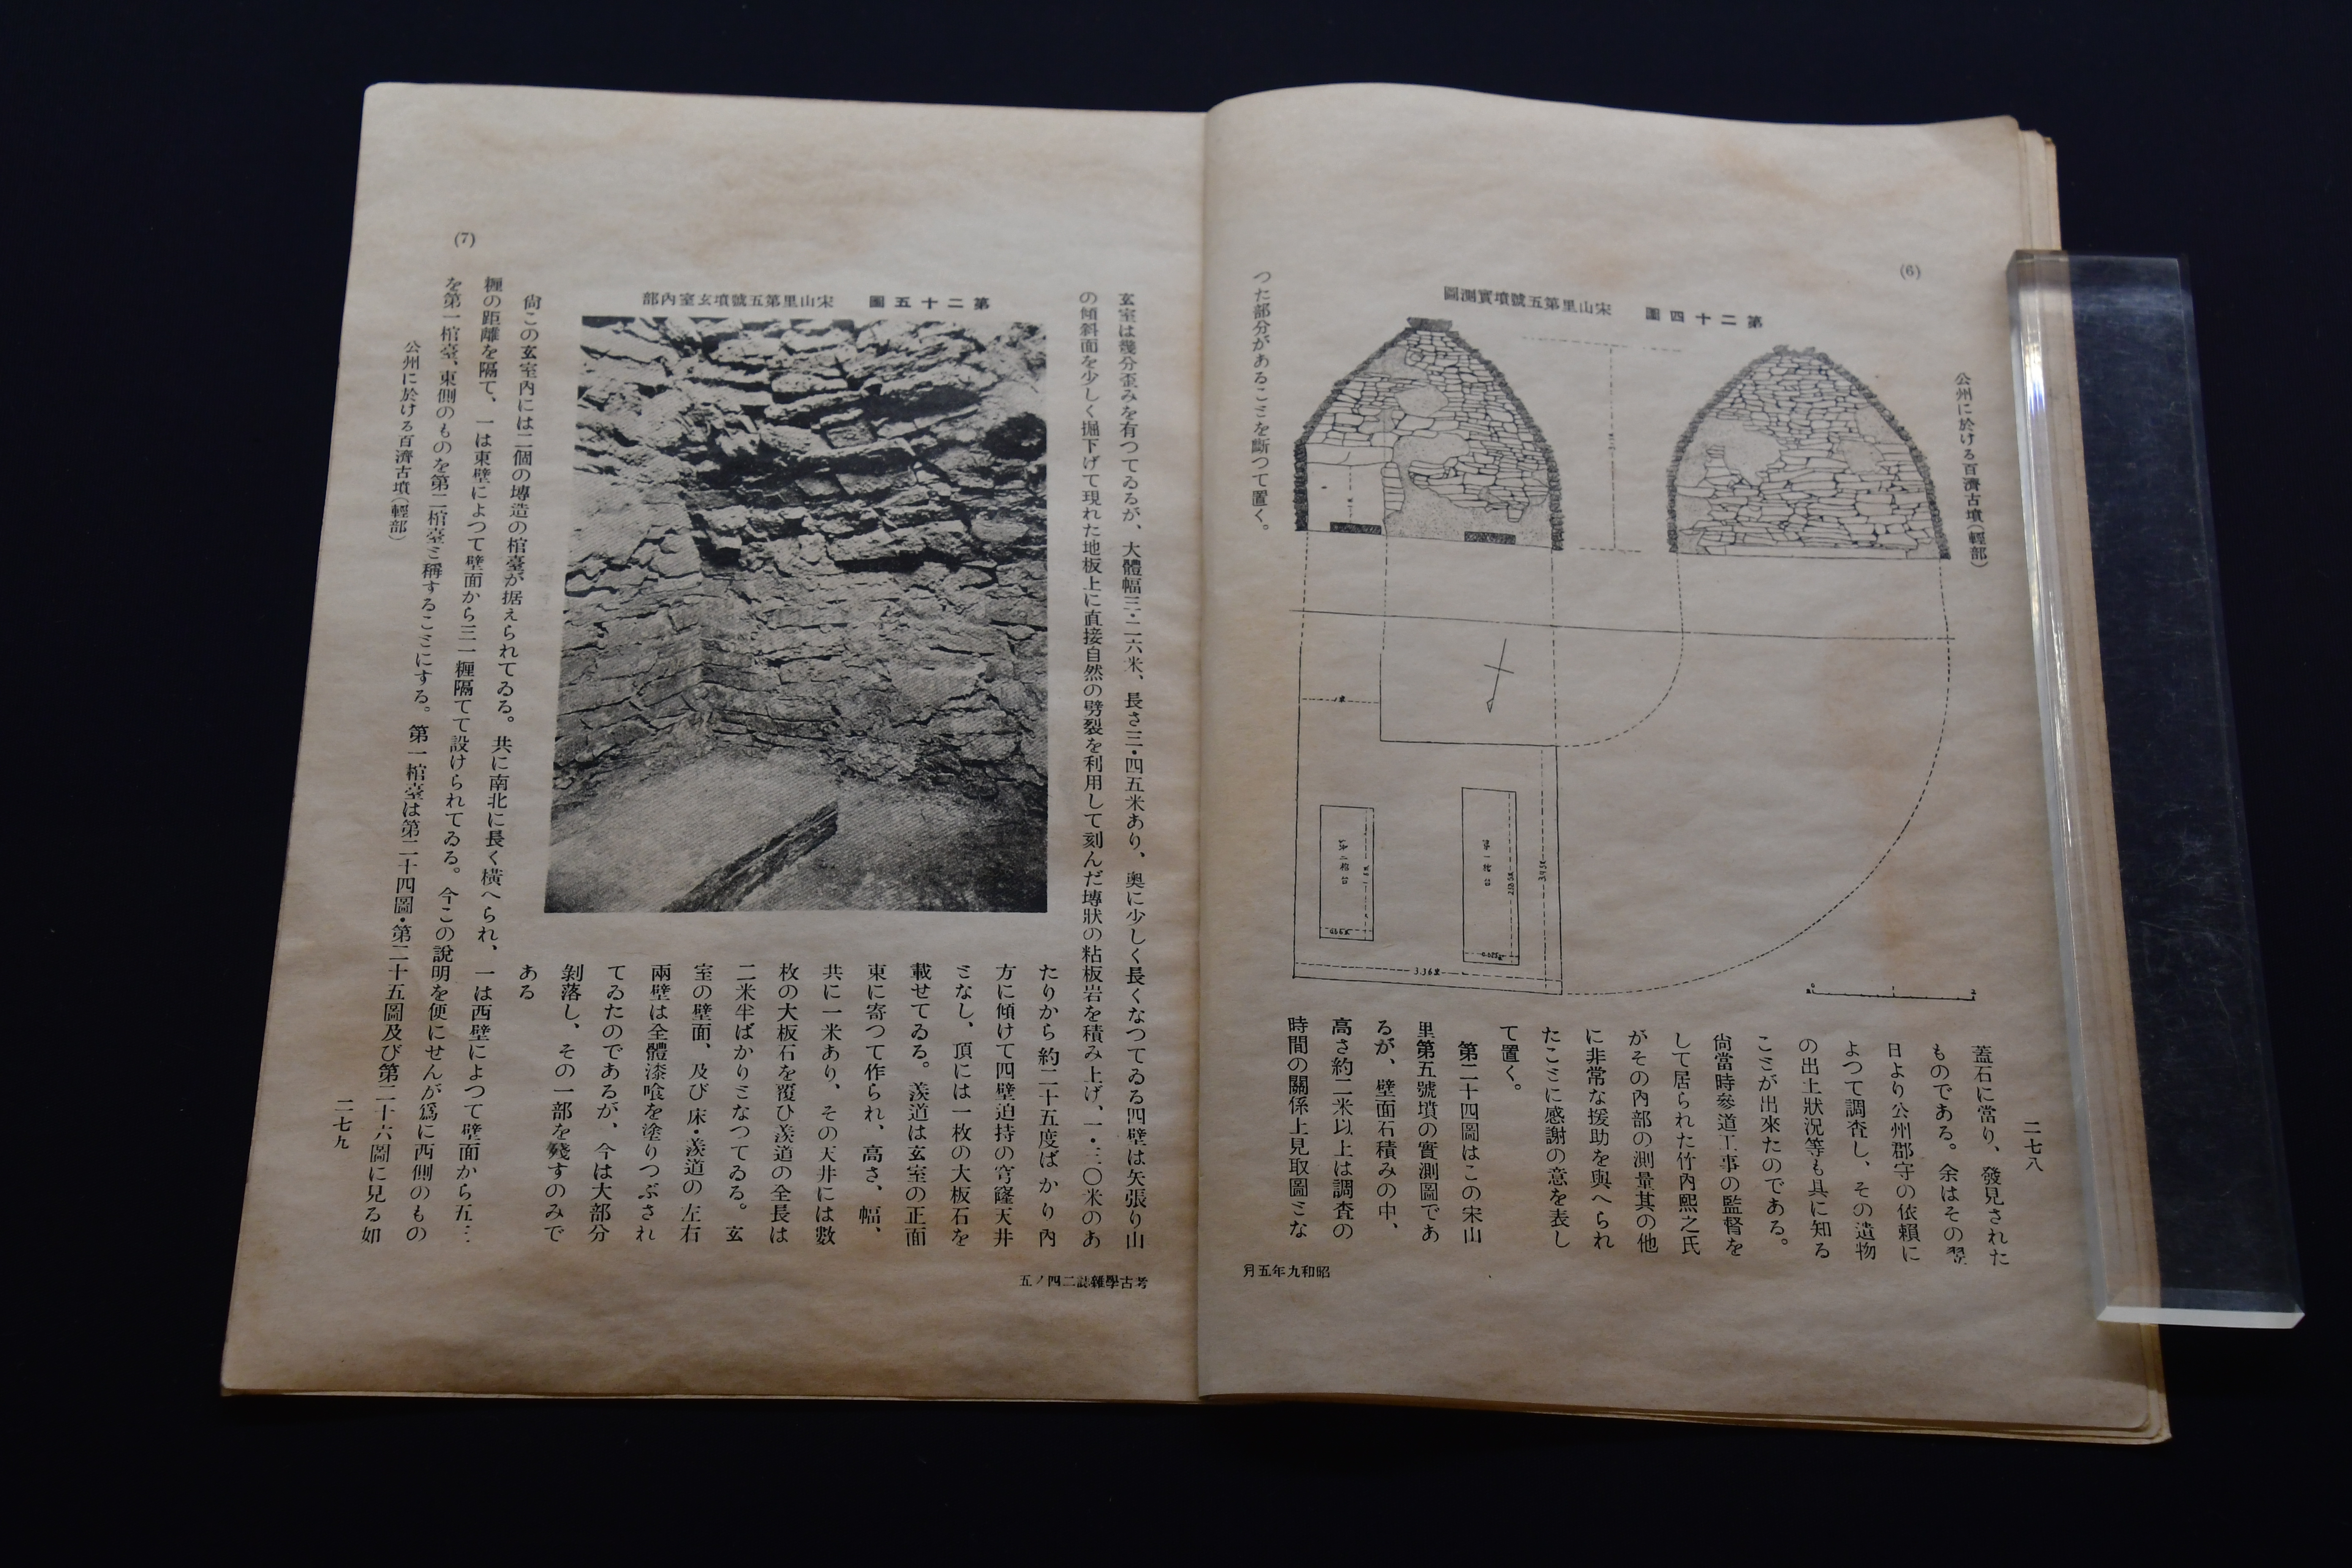 (6)
公州に於ける百濟古墳(輕部)
二七八
第二十四圖 宋山里第五號墳實測圖
第一棺台
第二棺台
3.36米
蓋石に當り、發見された
ものである。余はその翌
日より公州郡守の依賴に
よつて調査し、その遺物
の出土狀況等も具に知る
ことが出來たのである。
尙當時參道工事の監督を
して居られた竹內熙之氏
がその內部の測量其の他
に非常な援助を與へられ
たことに感謝の意を表し
て置く。
第二十四圖はこの宋山
里第五號墳の實測圖であ
るが、壁面石積みの中、
高さ約二米以上は調査の
時間の關係上見取圖とな
つた部分があることを斷つて置く。
昭和九年五月
玄室は幾分歪みを有つてゐるが、大體幅三・二六米、長さ三・四五米あり、奧に少しく長くなつてゐる四壁は矢張り山
の傾斜面を少しく掘下げて現れた地板上に直接自然の劈裂を利用して刻んだ塼狀の粘板岩を積み上げ、一・三〇米のあ
たりから約二十五度ばかり內
方に傾けて四壁迫持の穹窿天井
となし、頂には一枚の大板石を
載せてゐる。羨道は玄室の正面
東に寄つて作られ、高さ、幅、
共に一米あり、その天井には數
枚の大板石を覆ひ羨道の全長は
二米半ばかりとなつてゐる。玄
室の壁面、及び床・羨道の左右
兩壁は全體漆喰を塗りつぶされ
てゐたのであるが、今は大部分
剝落し、その一部を殘すのみで
ある
第二十五圖 宋山里第五號墳玄室內部
尙この玄室內には二個の塼造の棺臺が据えられてゐる。共に南北に長く橫へられ、一は西壁によつて壁面から五三
糎の距離を隔て、一は東壁によつて壁面から三一糎隔てて設けられてゐる。今この說明を便にせんが爲に西側のもの
を第一棺臺、東側のものを第二棺臺と稱することにする。第一棺臺は第二十四圖・第二十五圖及び第二十六圖に見る如
公州に於ける百濟古墳(輕部)
二七九
(7)
考古學雜誌二四ノ五